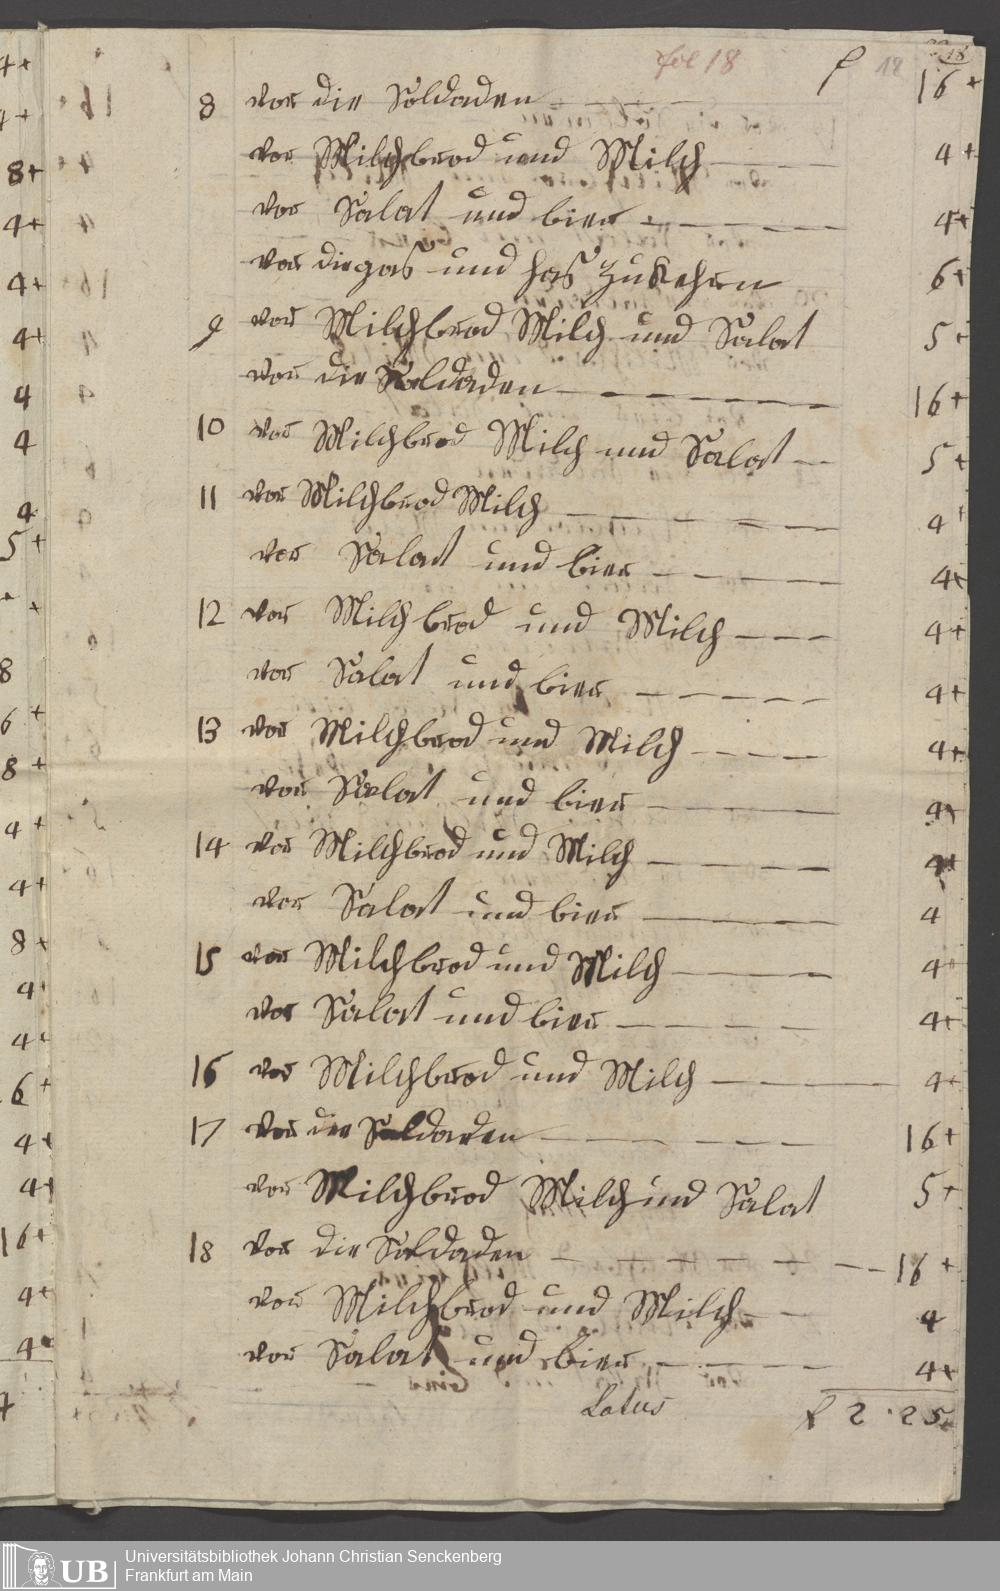 fol 18 f 18 18
8 vor die Soldaden - - - 16 +
vor Milchbrod und Milch - - 4 +
vor Salat und bier - - - - 4+
vor die gas und has zu Kehren 6+
9 vor Milchbrod Milch und Salat 5+
vor die Soldaden - - - - - 16+
10 vor Milchbrod Milch und Salat - 5+
11 vor Milchbrod Milch - - - - - 4+
vor Salat und bier - - - - 4+
12 vor Milchbrod und Milch - - - 4+
vor Salat und bier - - - - - 4+
13 vor Milchbrod und Milch - - - - 4+
vor Salat und bier - - - 4+
14 vor Milchbrod und Milch - - - - 4+
vor Salat und bier - - - 4
15 vor Milchbrod und Milch - - - 4+
vor Salat und bier - - - - 4+
16 vor Milchbrod und Milch - - - 4+
17 vor die Soldaden - - - - - 16+
vor Milchbrod Milch und Salat 5+
18 vor die Soldaden - - - - - - 16 +
vor Milchbrod und Milch - - 4
vor Salat und bier - - - - 4+
Latus f 2 . 25
4+
4+
8+
4+
4+
4+
4
4
4
5+
8
6+
8+
4+
4+
8+
4+
4+
6+
4+
4+
16+
4+
4+
UB
Universitätsbibliothek Johann Christian Senckenberg
Frankfurt am Main